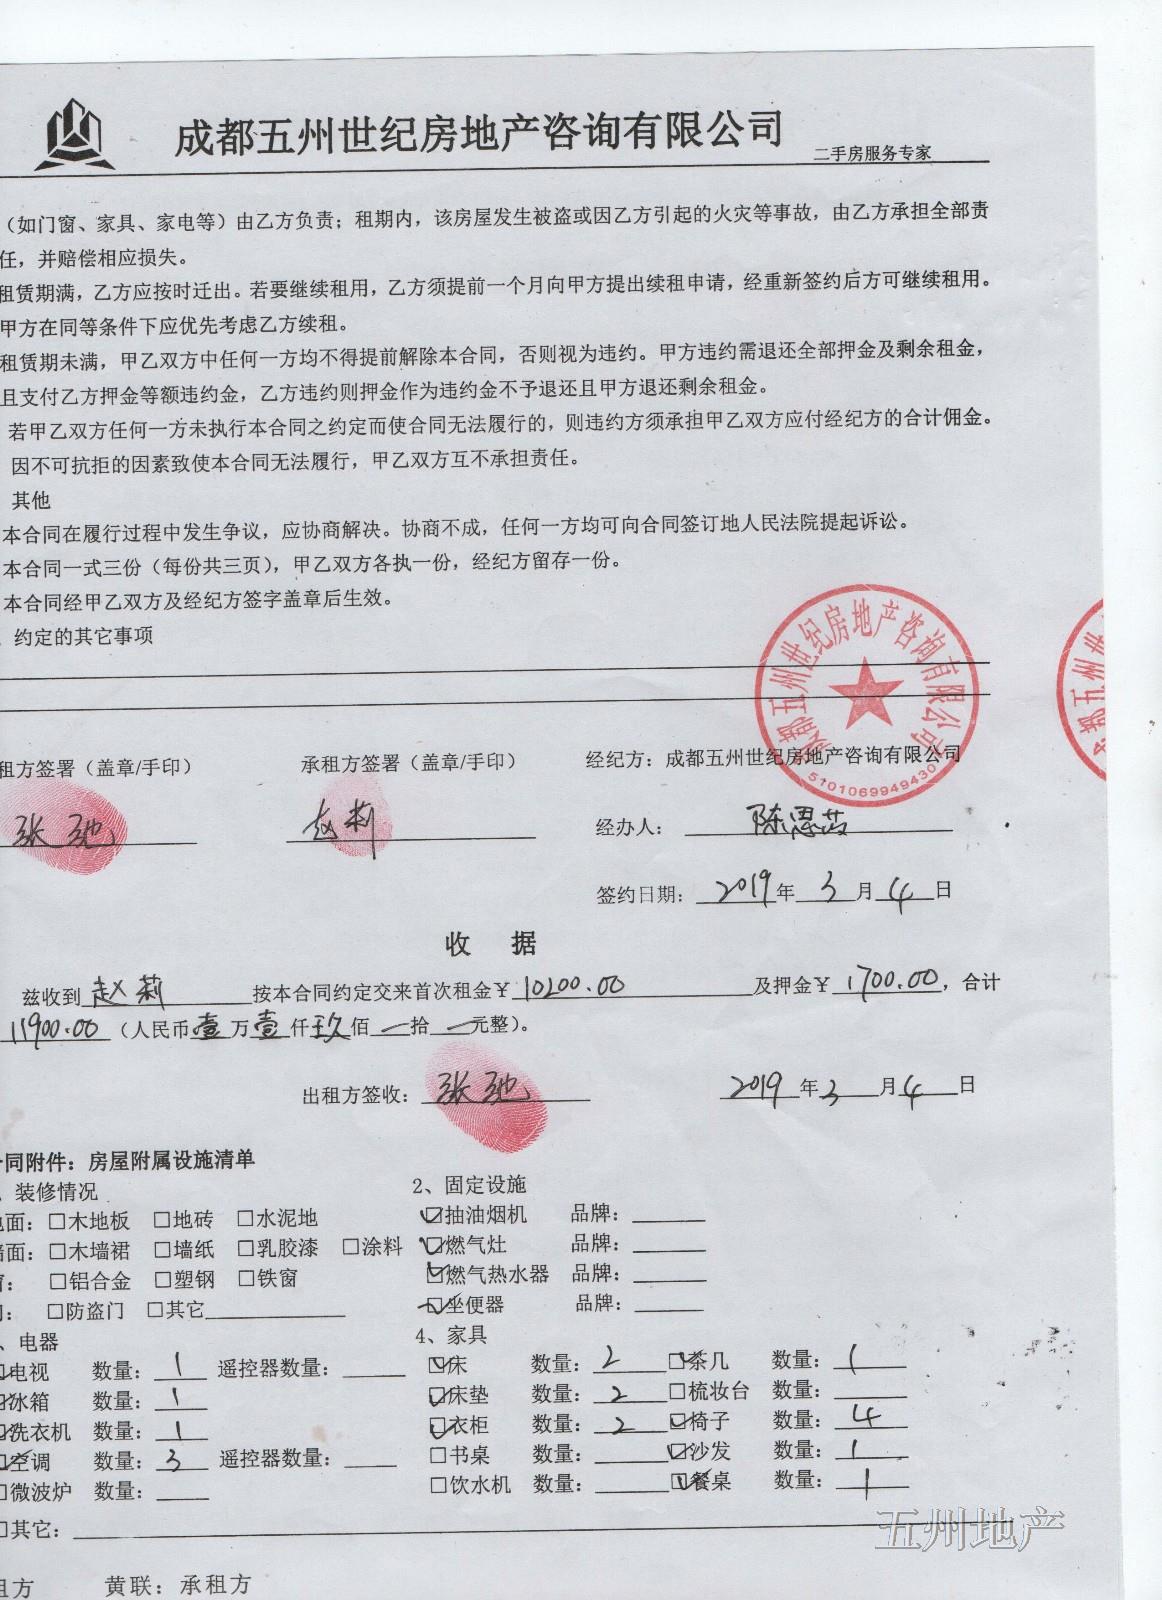 成都五州世纪房地产咨询有限公司 二手房服务专家
（如门窗、家具、家电等）由乙方负责；租期内，该房屋发生被盗或因乙方引起的火灾等事故，由乙方承担全部责
任，并赔偿相应损失。
租赁期满，乙方应按时迁出。若要继续租用，乙方须提前一个月向甲方提出续租申请，经重新签约后方可继续租用。
甲方在同等条件下应优先考虑乙方续租。
租赁期未满，甲乙双方中任何一方均不得提前解除本合同，否则视为违约。甲方违约需退还全部押金及剩余租金，
且支付乙方押金等额违约金，乙方违约则押金作为违约金不予退还且甲方退还剩余租金。
若甲乙双方任何一方未执行本合同之约定而使合同无法履行的，则违约方须承担甲乙双方应付经纪方的合计佣金。
因不可抗拒的因素致使本合同无法履行，甲乙双方互不承担责任。
其他
本合同在履行过程中发生争议，应协商解决。协商不成，任何一方均可向合同签订地人民法院提起诉讼。
本合同一式三份（每份共三页），甲乙双方各执一份，经纪方留存一份。
本合同经甲乙双方及经纪方签字盖章后生效。
约定的其它事项
成都五州世纪房地产咨询有限公司
5101069949430
都五州世
租方签署（盖章/手印） 承租方签署（盖章/手印） 经纪方：成都五州世纪房地产咨询有限公司
张弛 赵莉 经办人：陈思
签约日期：2019年3月4日
收 据
兹收到赵莉按本合同约定交来首次租金￥10200.00及押金￥1700.00，合计
11900.00（人民币壹万壹仟玖佰一拾一元整）。
出租方签收：张弛 2019年3月4日
同附件：房屋附属设施清单
、装修情况 2、固定设施
面：□木地板 □地砖 □水泥地 ☑抽油烟机 品牌：
墙面：□木墙裙 □墙纸 □乳胶漆 □涂料 ☑燃气灶 品牌：
窗：□铝合金 □塑钢 □铁窗 ☑燃气热水器 品牌：
：□防盗门 □其它 ☑坐便器 品牌：
、电器 4、家具
☑电视 数量：1 遥控器数量： ☑床 数量：2 ☑茶几 数量：1
☑冰箱 数量：1 ☑床垫 数量：2 □梳妆台 数量：
☑洗衣机 数量：1 ☑衣柜 数量：2 ☑椅子 数量：4
☑空调 数量：3 遥控器数量： □书桌 数量： ☑沙发 数量：1
□微波炉 数量： □饮水机 数量： ☑餐桌 数量：1
□其它：
五州地产
租方 黄联：承租方